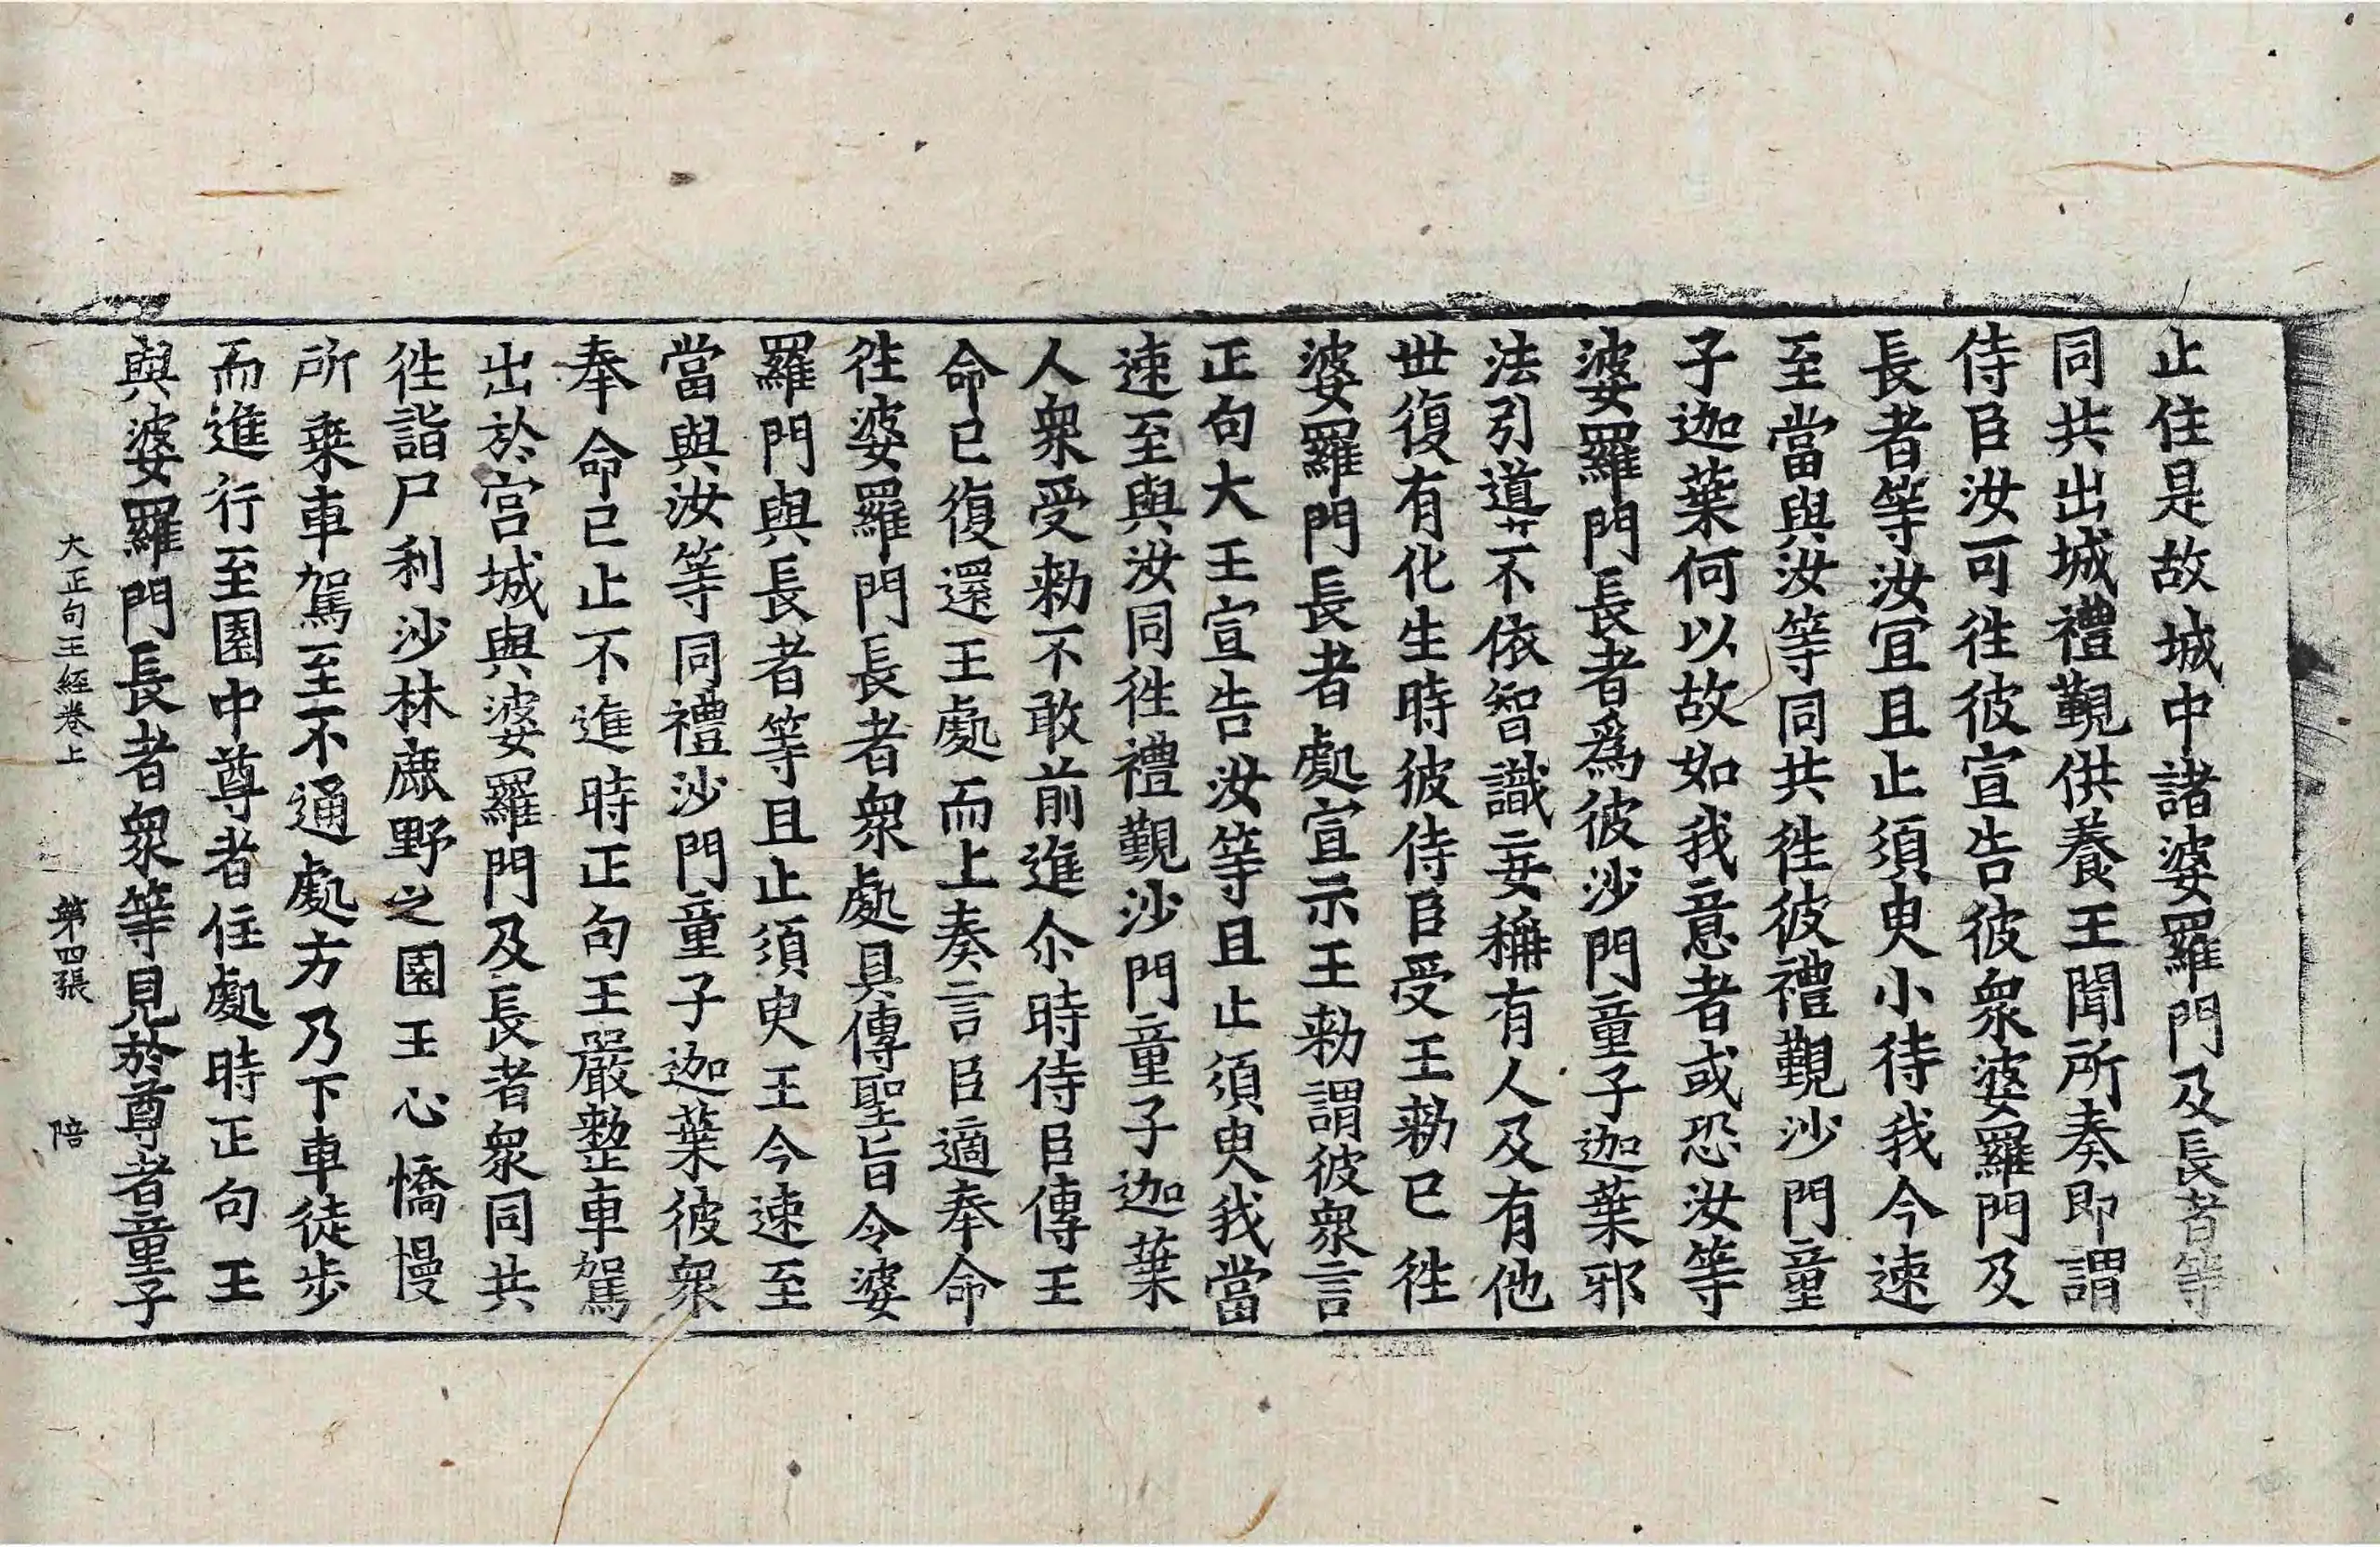 止住是故城中諸婆羅門及長者等
同共出城禮覲供養王聞所奏即謂
侍臣汝可徃彼宣告彼衆婆羅門及
長者等汝宜且止須臾小待我今速
至當與汝等同共徃彼禮覲沙門童
子迦葉何以故如我意者或恐汝等
婆羅門長者爲彼沙門童子迦葉邪
法引道䒭不依智識妄稱有人及有他
世復有化生時彼侍臣受王勑已徃
婆羅門長者處宣示王勑謂彼衆言
正句大王宣告汝等且止須臾我當
速至與汝同徃禮覲沙門童子迦葉
人衆受勑不敢前進尒時侍臣傳王
命已復還王處而上奏言臣適奉命
徃婆羅門長者衆處具傳聖旨令婆
羅門與長者等且止須臾王今速至
當與汝等同禮沙門童子迦葉彼衆
奉命已止不進時正句王嚴整車駕
出於宮城與婆羅門及長者衆同共
徃詣尸利沙林鹿野之園王心憍慢
所乗車駕至不通處方乃下車徒步
而進行至園中尊者住處時正句王
與婆羅門長者衆等見於尊者童子
大正句王經卷上 第四張 陪